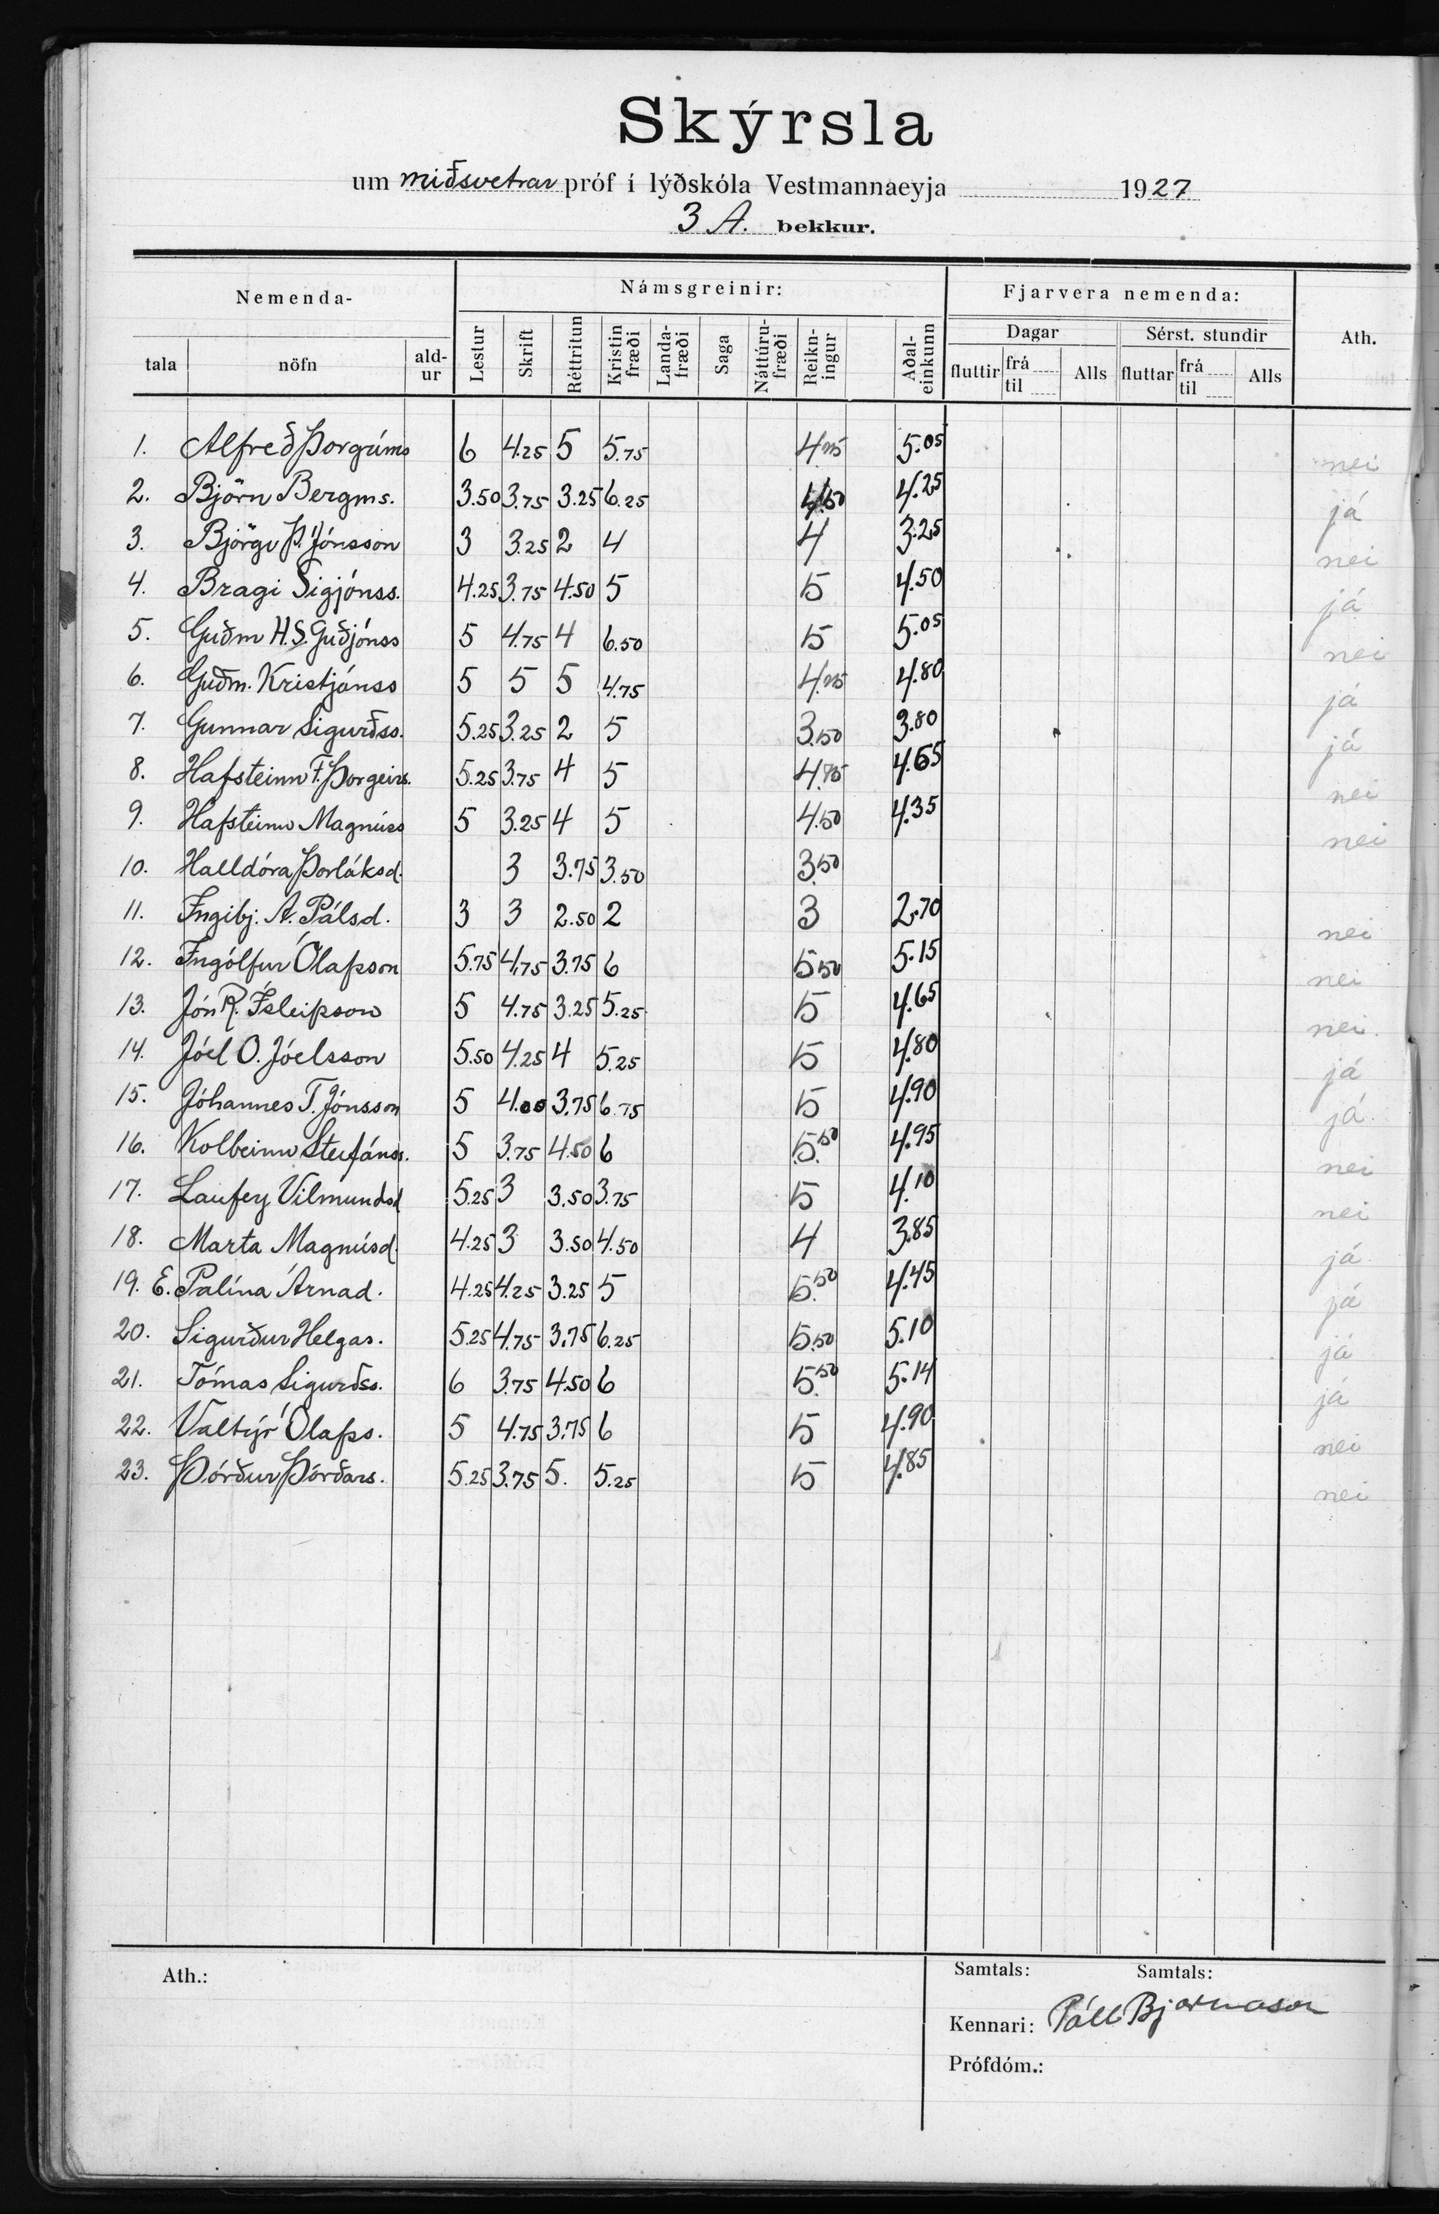 Skýrsla
um miðsvetrar próf í lýðskóla Vestmannaeyja 1927
3 A. bekkur.
Nemenda- Námsgreinir: Fjarvera nemenda: Ath.
Dagar Sérst. stundir
tala nöfn ald-ur Lestur Skrift Réttritun Kristinfræði Landa-fræði Saga Náttúru-fræði Reikn-ingur Aðal-einkunn fluttir frá til Alls fluttar frá til Alls
1. Alfreð Þorgríms 6 4.25 5 5.75 5.05 nei
2. Björn Bergms. 3.50 3.75 3.25 6.25 4.25 já
3. Björgv Þ. Jónsson 3 3.25 2 4 4 3.25 nei
4. Bragi Sigjónss. 4.25 3.75 4.50 5 5 4.50 já
5. Guðm H.S. Guðjónss 5 4.75 4 6.50 5 5.05 nei
6. Guðm. Kristjánss 5 5 5 4.75 4.80 já
7. Gunnar Sigurðss. 5.25 3.25 2 5 3.50 3.80 já
8. Hafsteinn F. Þorgeirs. 5.25 3.75 4 5 4.75 4.65 nei
9. Hafsteinn Magnúss 5 3.25 4 5 4.50 4.35 nei
10. Halldóra Þorláksd. 3 3.75 3.50 3.50
11. Ingibj. A. Pálsd. 3 3 2.50 2 3 2.70 nei
12. Ingólfur Ólafsson 5.75 4.75 3.75 6 5.50 5.15 nei
13. Jón R. Ísleifsson 5 4.75 3.25 5.25 5 4.65 nei
14. Jóel O. Jóelsson 5.50 4.25 4 5.25 5 4.80 já
15. Jóhannes T. Jónsson 5 4.00 3.75 6.75 5 4.90 já
16. Kolbeinn Stefánss. 5 3.75 4.50 6 5.50 4.95 nei
17. Laufey Vilmundsd 5.25 3 3.50 3.75 5 4.10 nei
18. Marta Magnúsd. 4.25 3 3.50 4.50 4 3.85 já
19. E. Palína Árnad. 4.25 4.25 3.25 5 5.50 4.45 já
20. Sigurður Helgas. 5.25 4.75 3.75 6.25 5.50 5.10 já
21. Tómas Sigurðss. 6 3.75 4.50 6 5.50 5.14 já
22. Valtýr Ólafss. 5 4.75 3.75 6 5 4.90 nei
23. Þórður Þórðars. 5.25 3.75 5. 5.25 5 4.85 nei
Ath.: Samtals: Samtals:
Kennari: Páll Bjarnason
Prófdóm.: